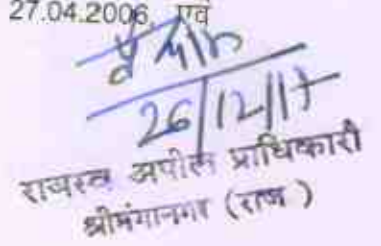 27.04.2006, एवं
26/12/17
राजस्व अपील प्राधिकारी
श्रीगंगानगर (राज )